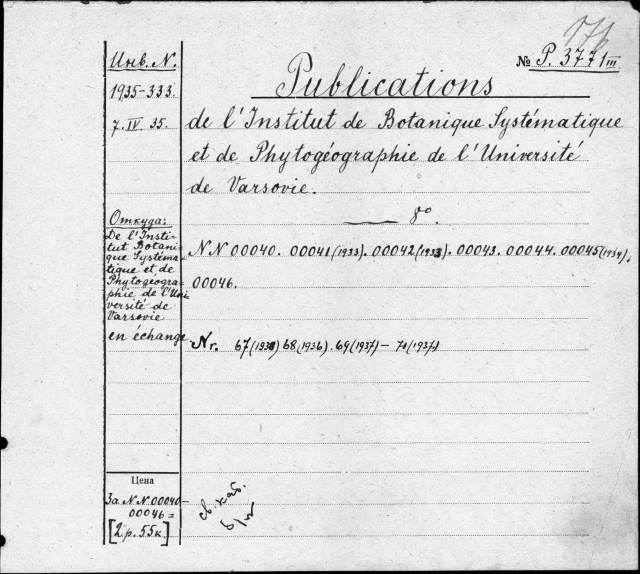 Инв. N.
№ P. 3771 III
1935-333.
7. IV 35.
Publications
de l'Institut de Botanique Systématique
et de Phytogéographie de l'Université
de Varsovie.
8°.
Откуда:
De l'Insti-
tut Botani-
que Systéma-
tique et de
Phytogéogra-
phie de l'Uni-
versité de
Varsovie
en échange
NN 00040. 00041 (1933). 00042 (1933). 00043. 00044. 00045 (1934),
00046.
Nr. 67 (1938) 68 (1936). 69 (1937) - 70 (1937)
Цена
За NN 00040-
00046 =
[2 р. 55 к.]
св. каб.